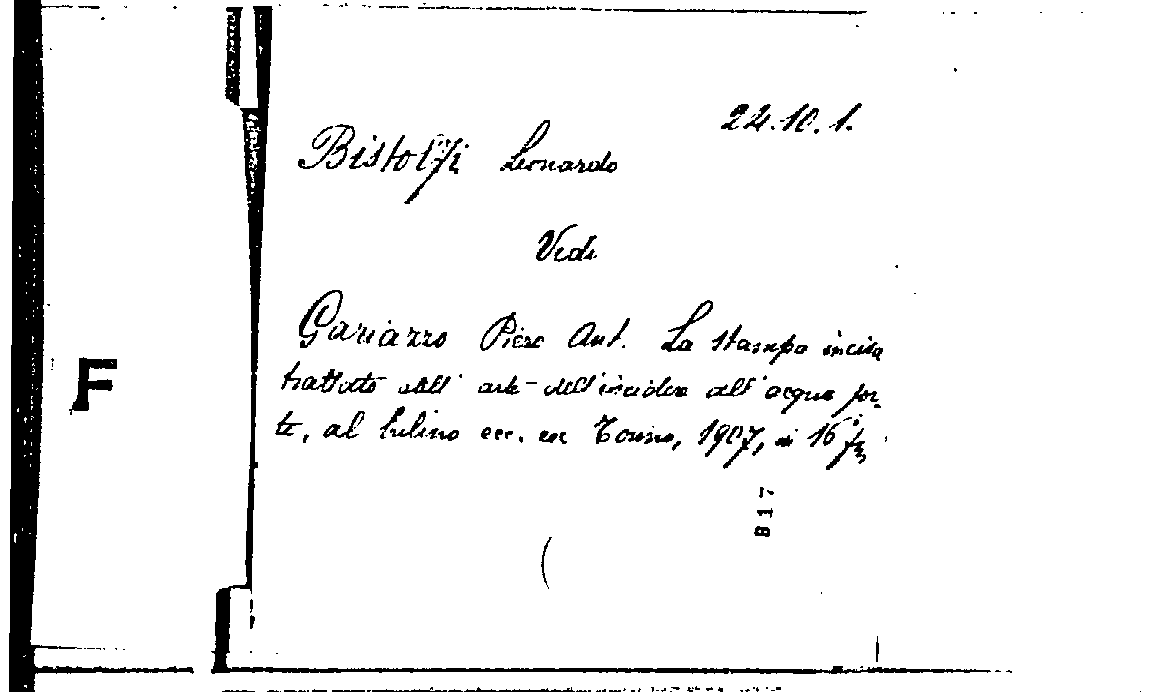 22.10.1.
Bistolfi Leonardo
Vedi
Gariazzo Piero Ant. La stampa incisa
trattato dell' arte dell'incidere all'acqua for-
te, al bulino ecc. ecc Torino, 1907, in 16
F
B17